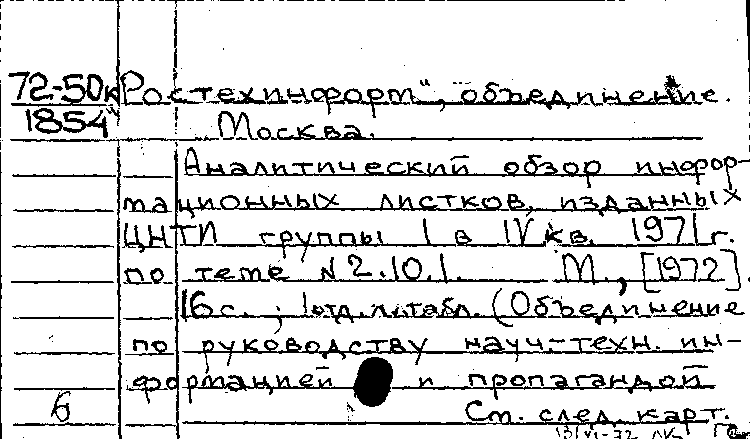 72-50к "Ростехинформ", объединение.
1854 Москва.
Аналитический обзор инфор-
мационных листков, изданных
ЦНТИ группы I в IV кв. 1971 г.
по теме N 2.10.1. М., [1972].
16 с.; 1 отд. л. табл. (Объединение
по руководству науч.-техн. ин-
формацией и пропагандой
6 См. след. карт.